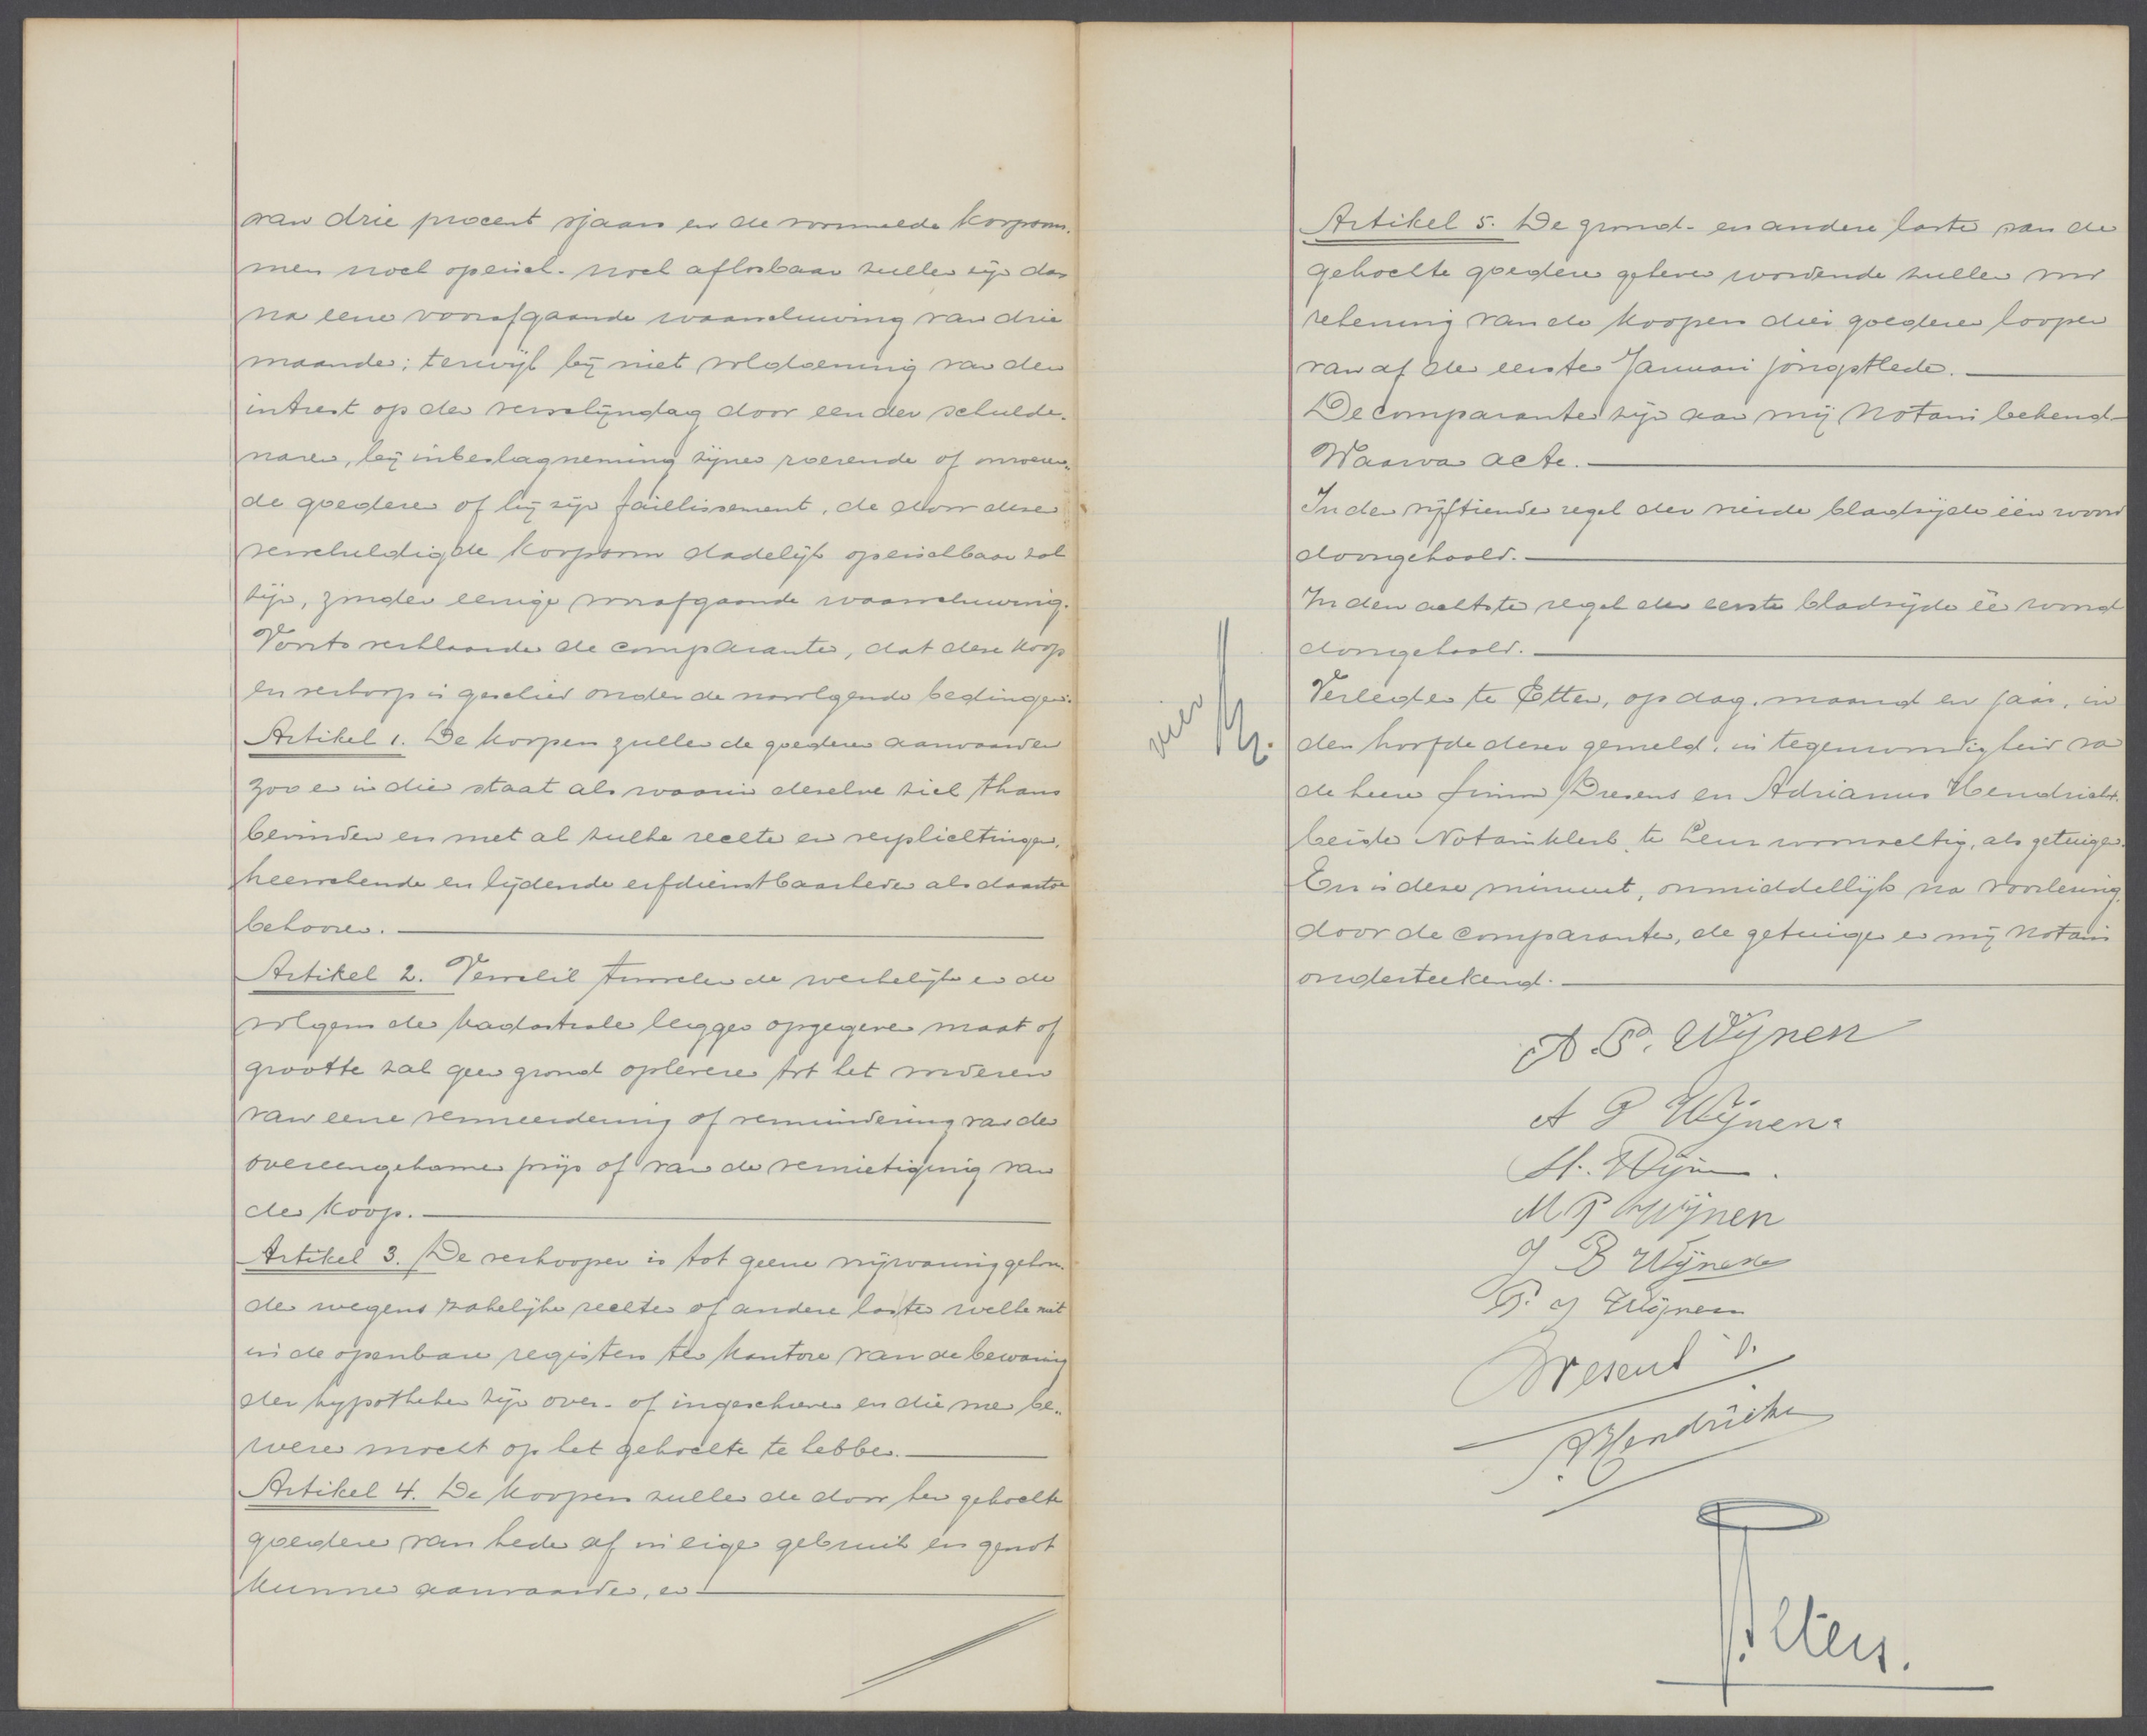 van drie procent 'sjaars en de voormelde koopsom-
men noch opeisch- noch aflosbaar zullen zijn dan
na eene voorafgaande waarschuwing van drie
maanden; terwijl bij niet voldoening van den
intrest op den verschijndag door een der schulde-
naren, bij inbeslagneming zijner roerende of onroeren-
de goederen of bij zijn faillissement, de door dezen
verschuldigde koopsom dadelijk opeischbaar zal
zijn, zonder eenige voorafgaande waarschuwing.
Voorts verklaarden de comparanten, dat deze koop
en verkoop is geschied onder de navolgende bedingen:
Artikel 1. De koopers zullen de goederen aanvaarden
zoo en in dien staat als waarin dezelve zich thans
bevinden en met al zulke rechten en verplichtingen,
heerschende en lijdende erfdienstbaarheden als daartoe
behooren.
Artikel 2. Verschil tusschen de werkelijke en de
volgens de kadastrale legger opgegeven maat of
grootte zal geen grond opleveren tot het vorderen
van eene vermeerdering of vermindering van den
overeengekomen prijs of van de vernietiging van
den koop.
Artikel 3. De verkooper is tot geene vrijwaring gehou-
den wegens zakelijke rechten of andere lasten welke niet
in de openbare registers ten kantore van de bewaring
der hypotheken zijn over- of ingeschreven en die men be-
weren mocht op het gekochte te hebben.
Artikel 4. De koopers zullen de door hen gekochte
goederen van heden af in eigen gebruik en genot
kunnen aanvaarden, en
Artikel 5. De grond- en andere lasten van de
gekochte goederen geheven wordende zullen voor
rekening van de koopers dier goederen loopen
van af den eersten Januari jongstleden.
De comparanten zijn aan mij Notaris bekend
Waarvan acte.
In den vijftienden regel der vierde bladzijde één woord
doorgehaald.
In den achtsten regel der eerste bladzijde één woord
doorgehaald.
vier
Verleden te Etten, op dag, maand en jaar, in
den hoofde dezer gemeld, in tegenwoordigheid van
de heeren Dresens en Adrianus Hendrickx,
beiden Notarisklerk, te Leur woonachtig, als getuigen.
En is deze minuut, onmiddellijk na voorlezing,
door de comparanten, de getuigen en mij Notaris
onderteekend.
A. P. Wijnen
A P Wijnen
H. Wijnen.
M P Wijnen
J B Wijnen
P. J Wijnen
Dresens J.
A Hendrickx
Alters.